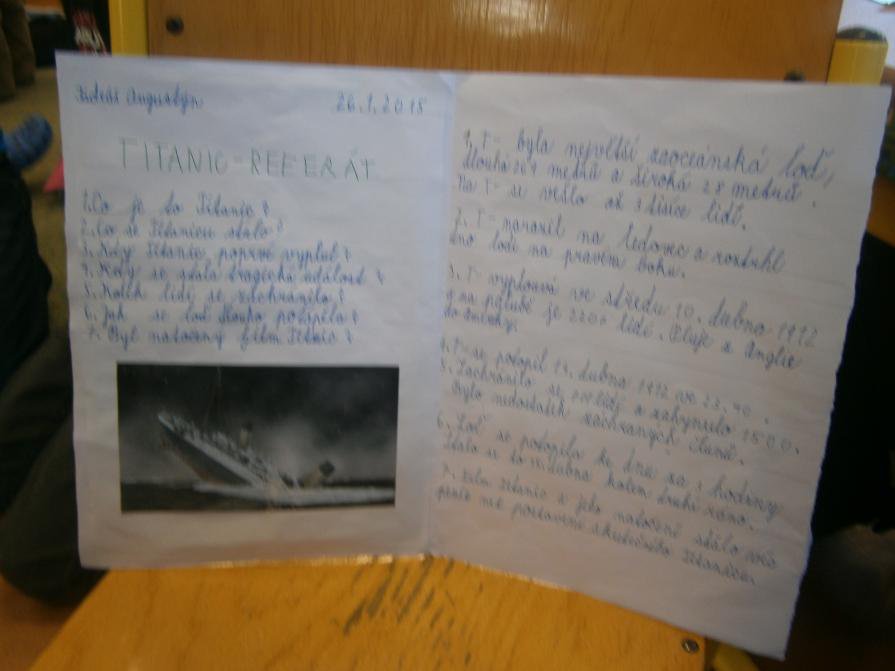 Augustýn 26.1.2015
TITANIC-REFERÁT
1. Co je to Titanic?
2. Co se Titanicu stalo?
3. Kdy Titanic poprvé vyplul?
4. Kdy se stala tragická událost?
5. Kolik lidí se zachránilo?
6. Jak se loď dlouho potápěla?
7. Byl natočený film Titanic?
1. T- byla největší zaoceánská loď,
dlouhá 269 metrů a široká 28 metrů.
Na T- se vešlo až 3 tisíce lidí.
2. T- narazil na ledovec a roztrhl
dno lodi na pravém boku.
3. T- vyplouvá ve středu 10. dubna 1912
a na palubě je 2206 lidí. Pluje z Anglie
do
4. T- se potopil 14. dubna 1912 ve 23.40.
5. Zachránilo se lidí a zahynulo 1500.
Bylo nedostatek záchranných člunů.
6. Loď se potopila ke dnu za hodiny
stalo se to 15. dubna kolem druhé ráno.
7. Film Titanic a jeho natočení stálo více
peněz než postavení skutečného Titanicu.